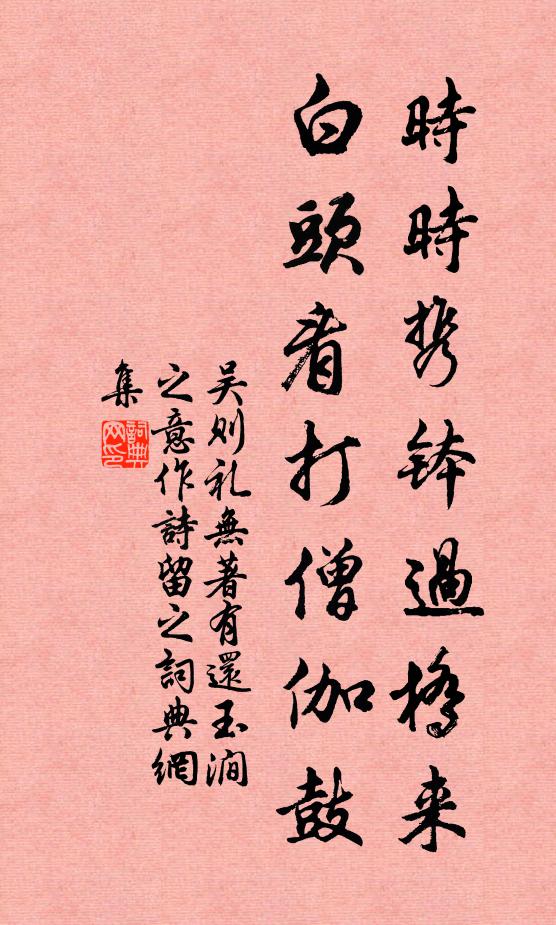 時時携鉢過橋来
白頭看打僧伽鼓
吴则礼無著有還玉澗
之意作詩留之詞典網
集
詞典
网印